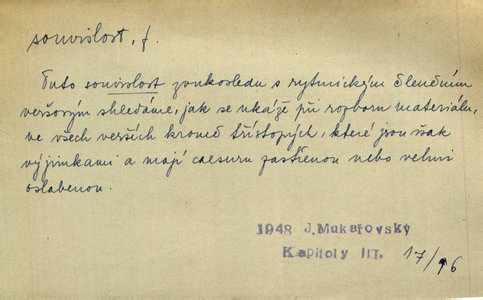 souvislost, f.
Tuto souvislost zvukosledu s rytmickým členěním
veršovým shledáme, jak se ukáže při rozboru materiálu,
ve všech verších kromě třístopých, které jsou však
výjimkami a mají caesuru zastřenou nebo velmi
oslabenou.
1948 J.Mukařovský
Kapitoly III. 17/96